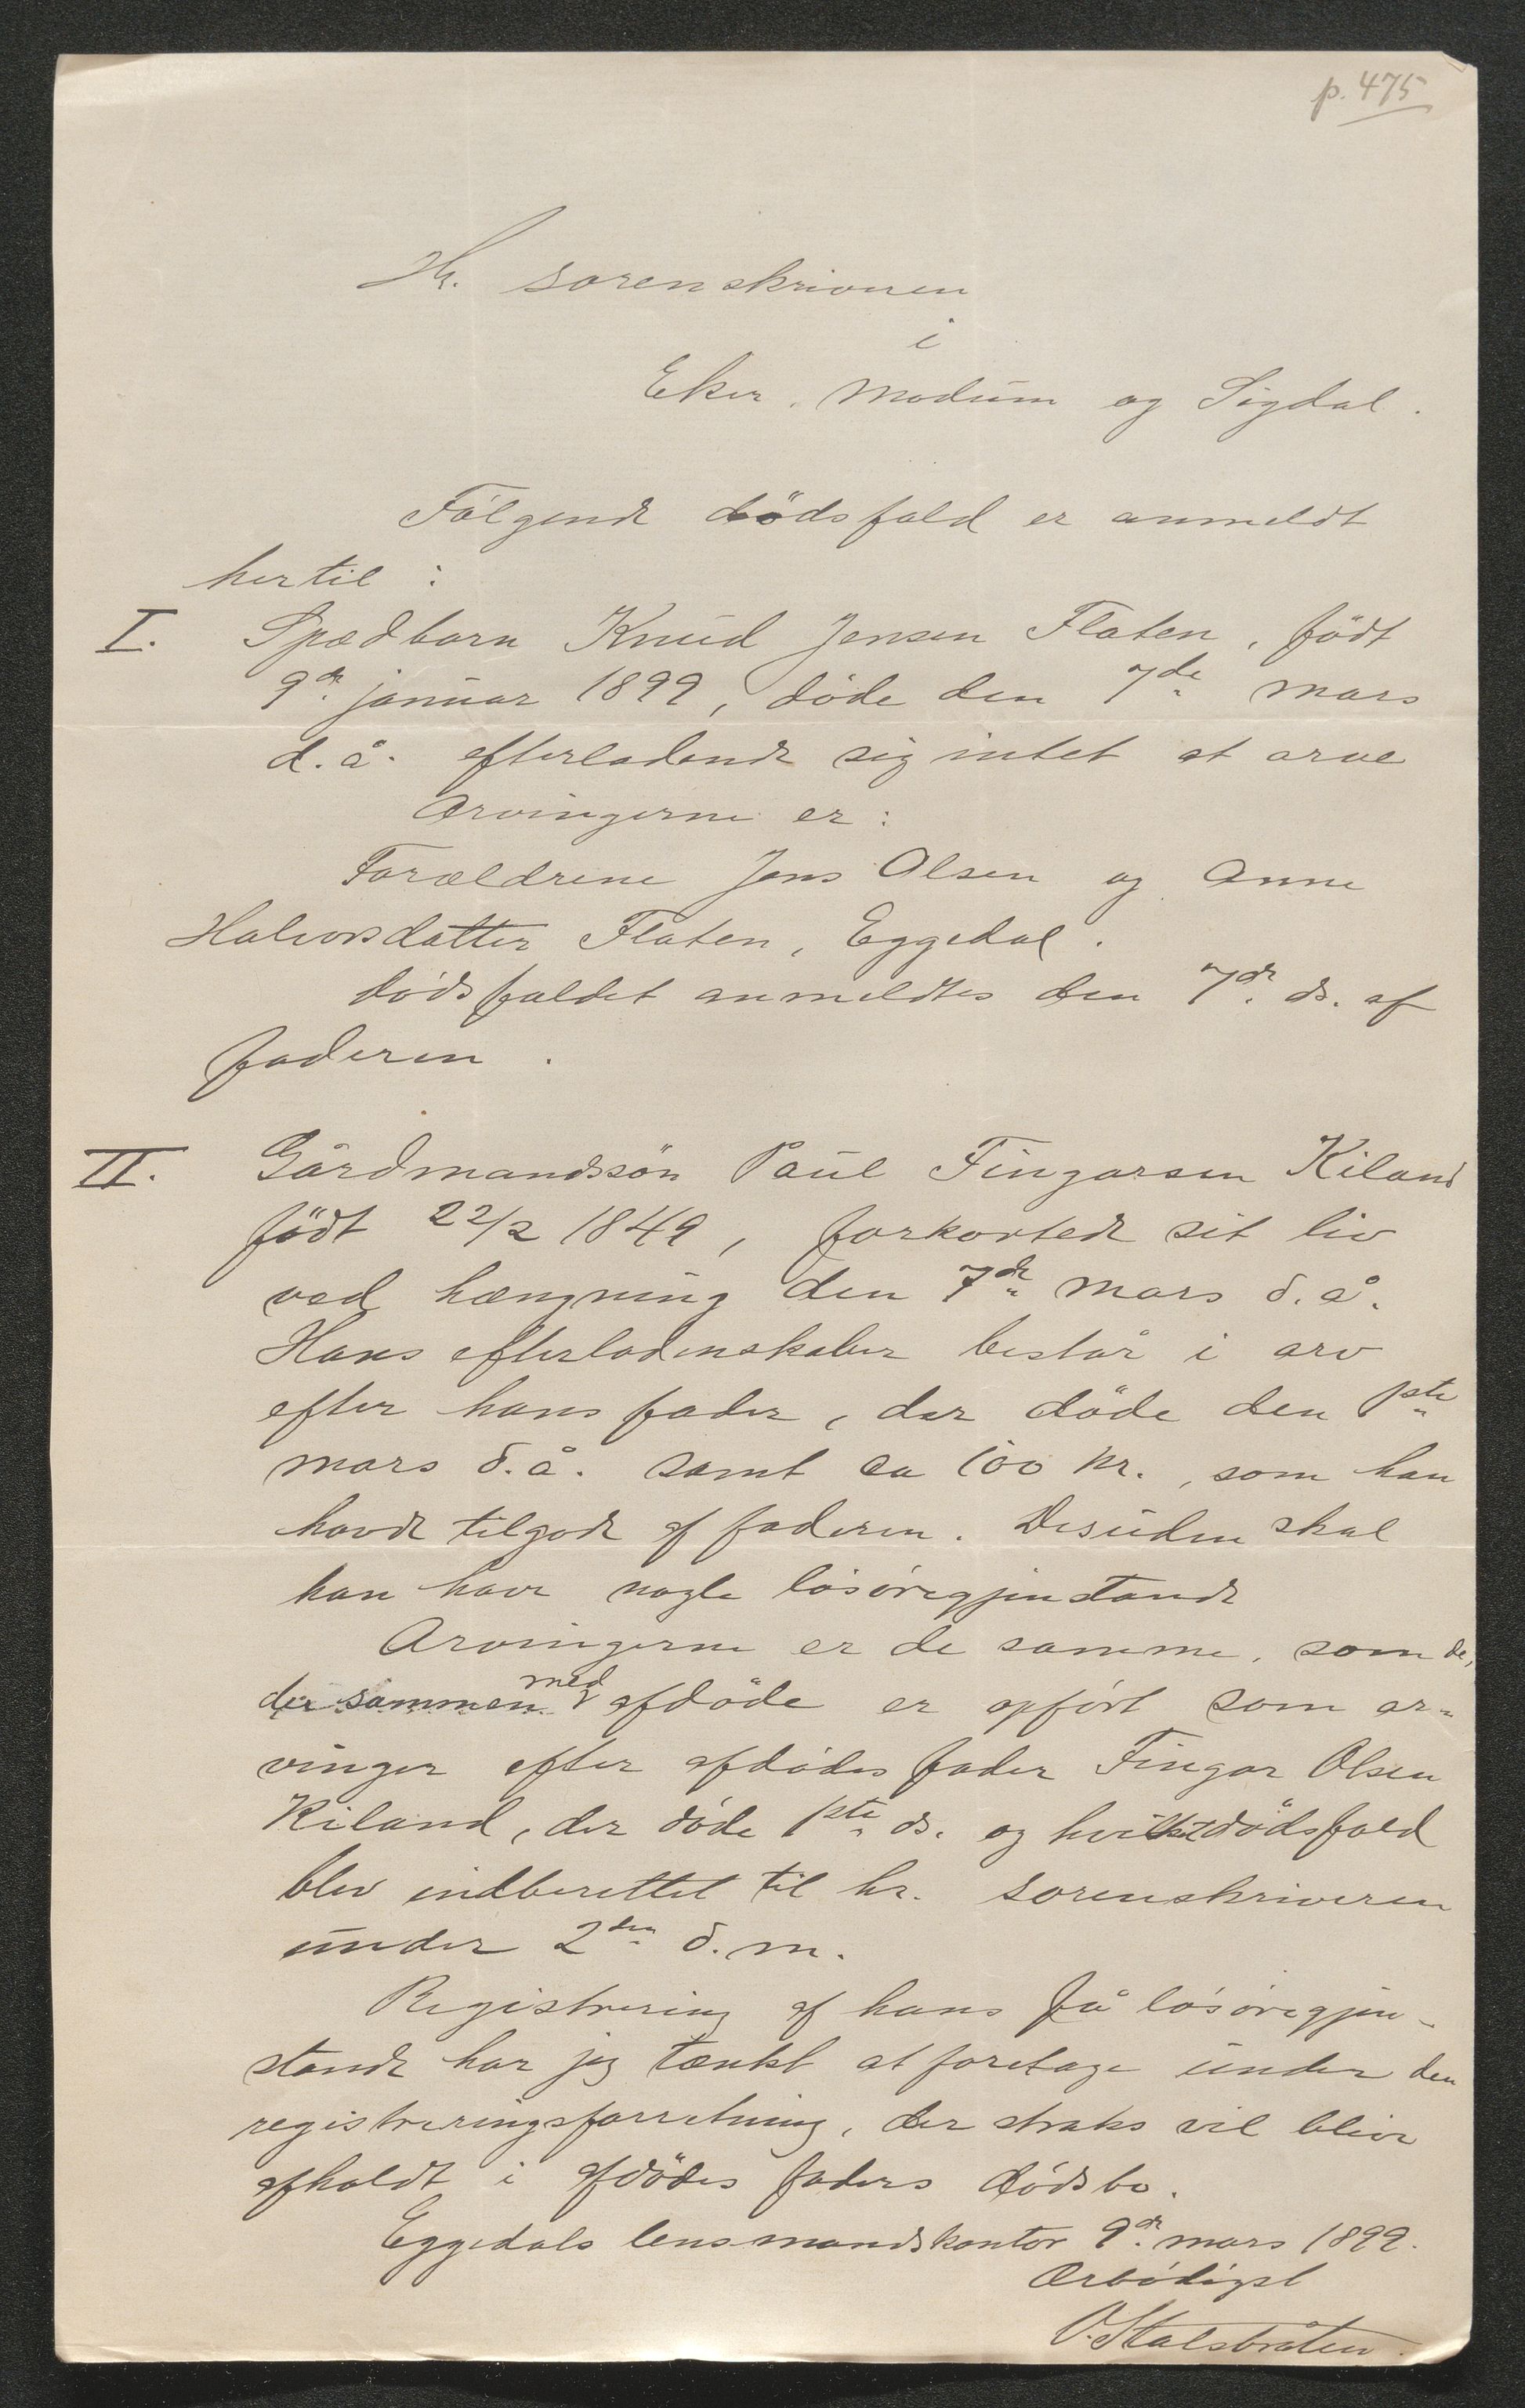 p. 475
Hr. sorenskriveren
i
Eker, Modum og Sigdal.
Følgende dödsfald er anmeldt
hertil :
I. Spædbarn Knud Jensen Flaten, födt
9de januar 1899, döde den 7de mars
d. å. efterladende sig intet at arve
Arvingerne er:
Forældrene Jens Olsen og Anne
Halvorsdatter Flaten, Eggedal.
Dödsfaldet anmeldtes den 7de ds. af
faderen.
II. Gårdmandssön Paul Fingarsen Kiland
födt 22/2 1849, forkortede sit liv
ved hængning den 7de mars d. å.
Hans efterladenskaber består i arv
efter hans fader, der döde den 1ste
mars d. å. samt ca 100 kr., som han
havde tilgode af faderen. Desuden skal
han have nogle lösöregjenstande
Arvingerne er de samme, som de,
der sammen med afdöde er opfört som ar-
vinger efter afdödes fader Fingar Olsen
Kiland, der döde 1ste ds. og hvilket dödsfald
blev indberettet til hr. sorenskriveren
under 2den d. m.
Registrering af hans få lösöregjen-
stande har jeg tænkt at foretage under den
registreringsforretning, der straks vil blive
afholdt i afdödes faders dödsbo.
Eggedals lensmandskontor 9de mars 1899.
Ærbödigst
O. Stalsbråten